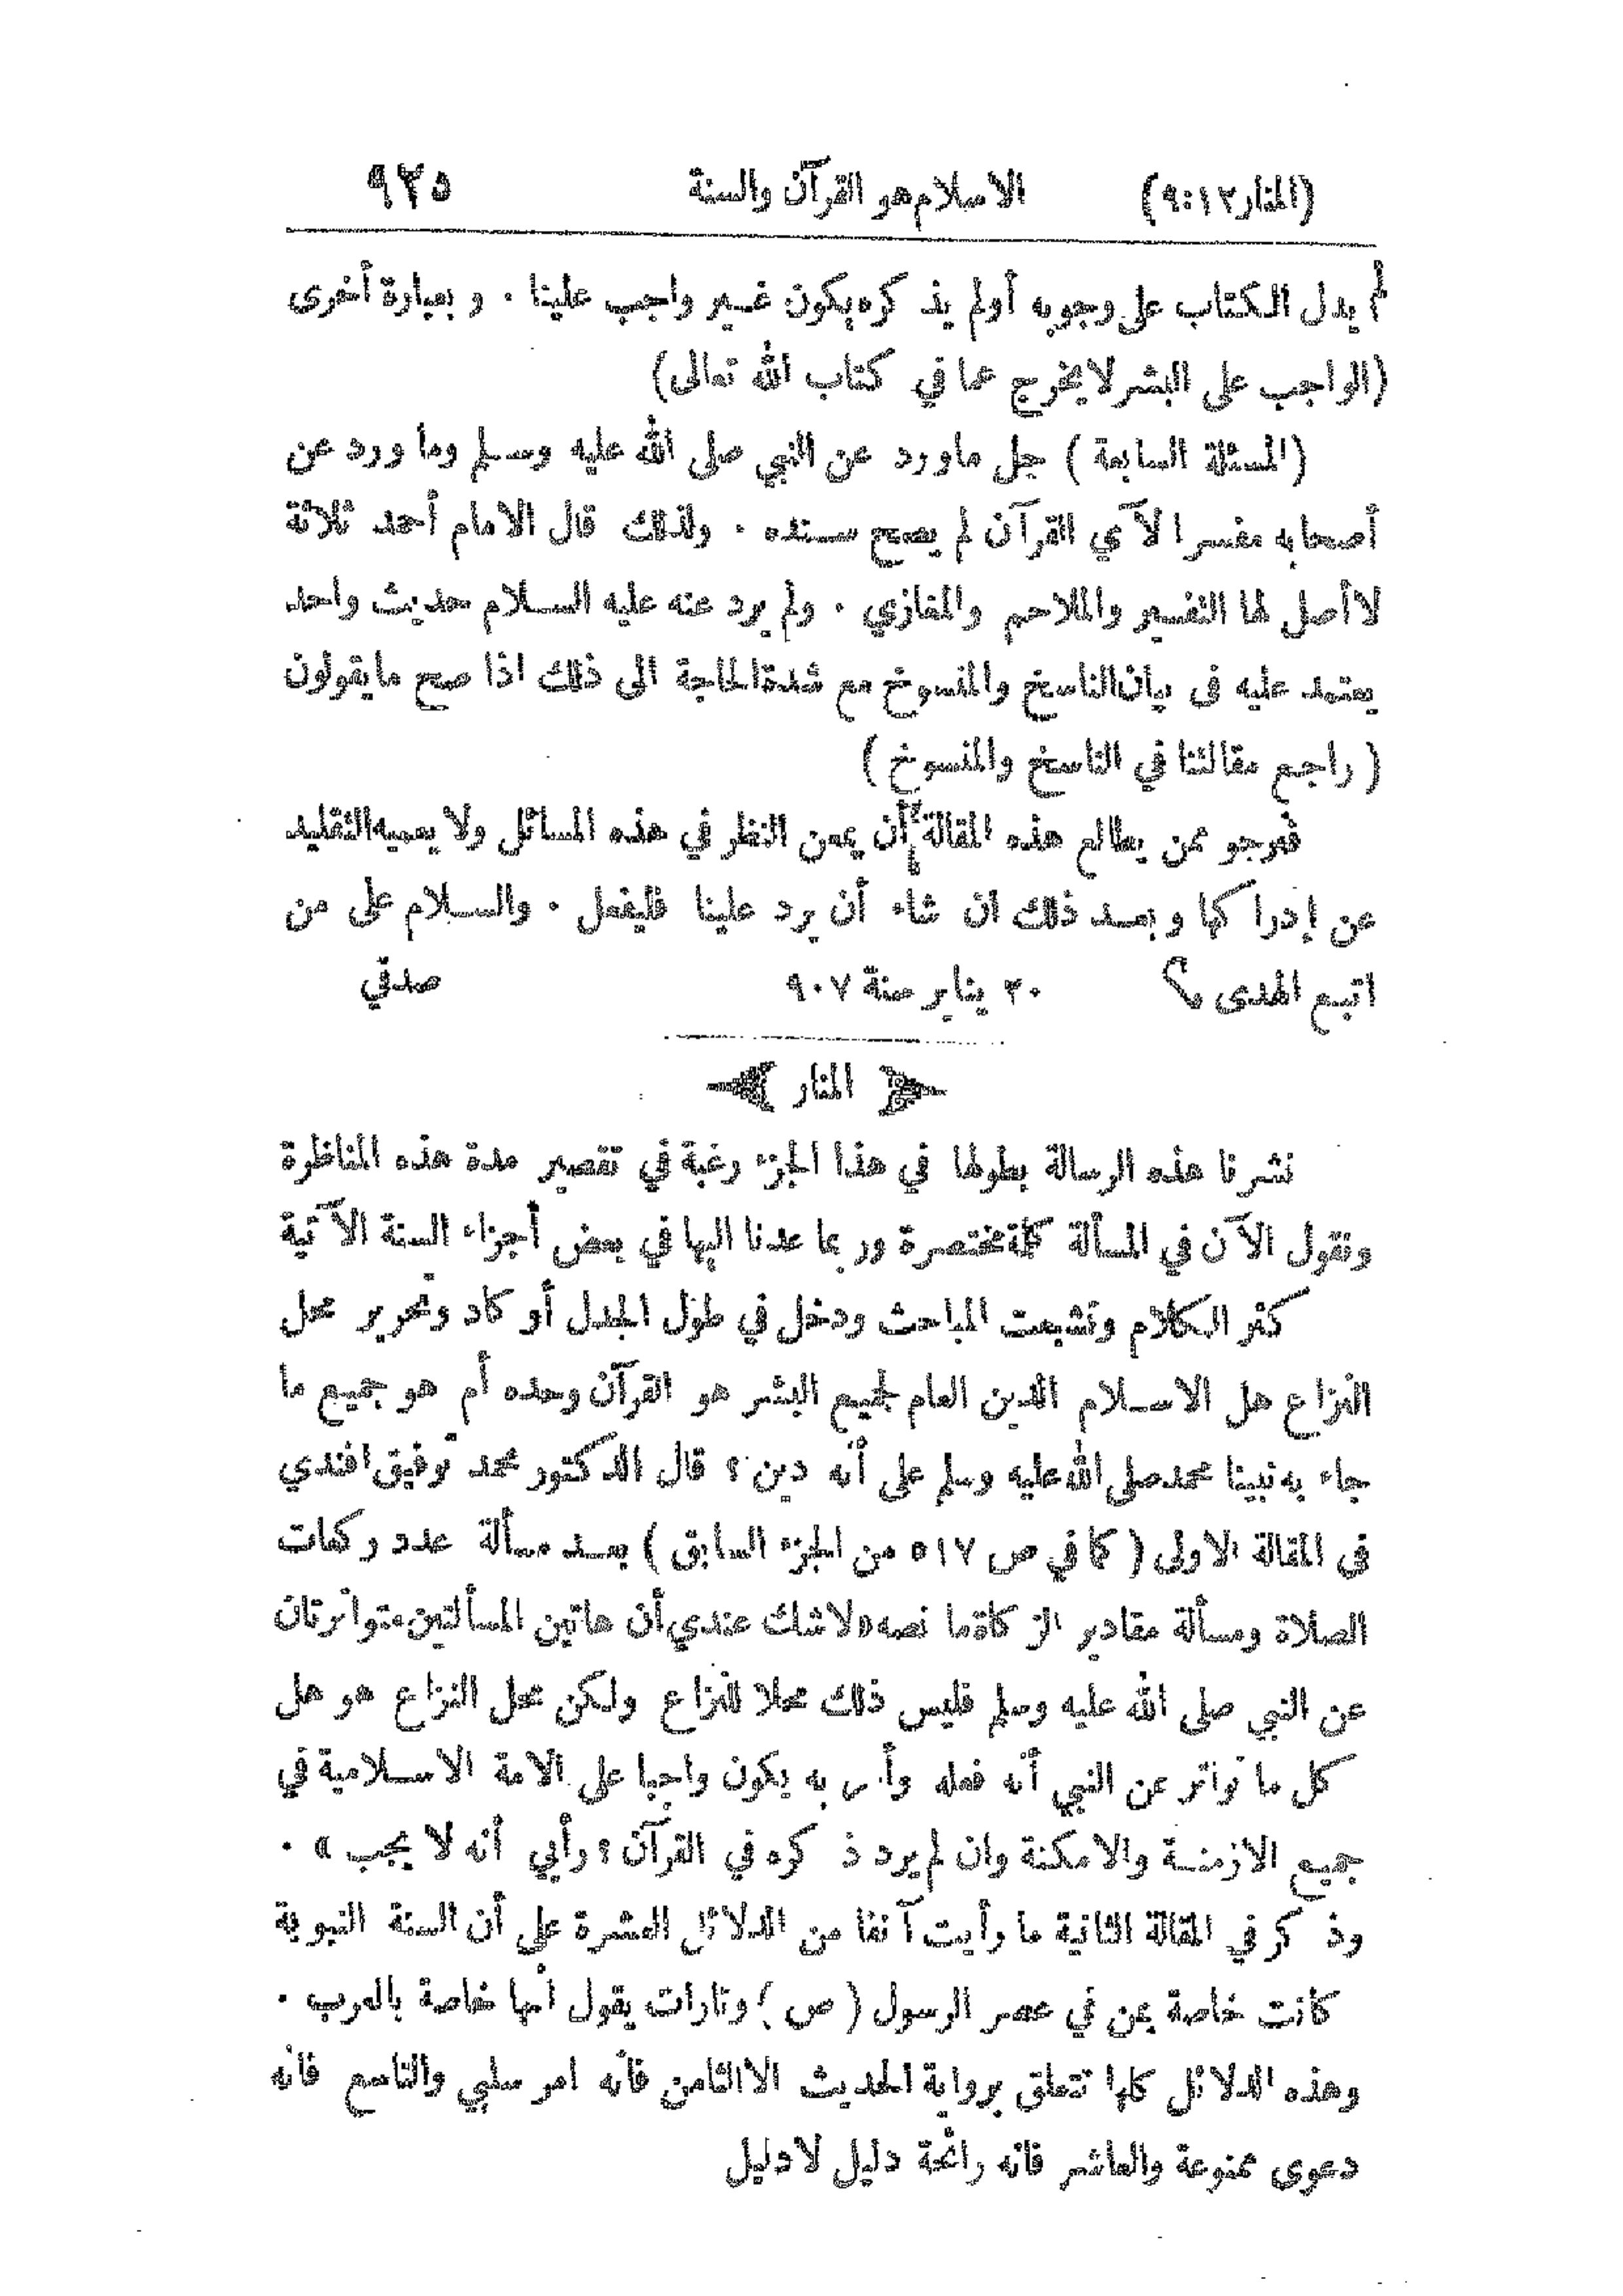 (المنار ١٢: ٩) الاسلام هو القرآن والسنة ٩٢٥
لم يدل الكتاب على وجوبه أولم يذكره يكون غير واجب علينا . وبعبارة أخرى
(الواجب على البشر لا يخرج عما في كتاب الله تعالى)
(المسئلة السابعة) جل ماورد عن النبي صلى الله عليه وسلم وما ورد عن
أصحابه مفسرا لآي القرآن لم يصح سنده . ولذلك قال الامام أحمد ثلاثة
لا أصل لها التفسير والملاحم والمغازي . ولم يرد عنه عليه السلام حديث واحد
يعتمد عليه في بيان الناسخ والمنسوخ مع شدة الحاجة الى ذلك اذا صح مايقولون
( راجع مقالتنا في الناسخ والمنسوخ )
فنرجو ممن يطالع هذه المقالة أن يمعن النظر في هذه المسائل ولا يعميه التقليد
عن إدراكها وبعد ذلك ان شاء أن يرد علينا فليفعل . والسلام على من
اتبع الهدى ٢٠ يناير سنة ٩٠٧ صدقي
﴿ المنار ﴾
نشرنا هذه الرسالة بطولها في هذا الجزء رغبة في تقصير مدة هذه المناظرة
ونقول الآن في المسألة كلمة مختصرة وربما عدنا اليها في بعض أجزاء السنة الآتية
كثر الكلام وتشعبت المباحث ودخل في طول الجدل أو كاد وتحرير محل
النزاع هل الاسلام الدين العام لجميع البشر هو القرآن وحده أم هو جميع ما
جاء به نبينا محمد صلى الله عليه وسلم على أنه دين ؟ قال الدكتور محمد توفيق افندي
في المقالة الاولى ( كما في ص ٥١٧ من الجزء السابق ) بعد مسألة عدد ركعات
الصلاة ومسألة مقادير الزكاة ما نصه «لا شك عندي أن هاتين المسألتين متواترتان
عن النبي صلى الله عليه وسلم فليس ذلك محلا للنزاع ولكن محل النزاع هو هل
كل ما تواتر عن النبي أنه فعله وأمر به يكون واجبا على الامة الاسلامية في
جميع الازمنة والامكنة وان لم يرد ذكره في القرآن ؟ رأيي أنه لا يجب» .
وذكر في المقالة الثانية ما رأيت آنفا من الدلائل العشرة على أن السنة النبوية
كانت خاصة بمن في عصر الرسول (ص) وتارات يقول أنها خاصة بالعرب .
وهذه الدلائل كلها تتعلق برواية الحديث الا الثامن فانه امر سلبي والتاسع فانه
دعوى ممنوعة والعاشر فانه رائحة دليل لا دليل